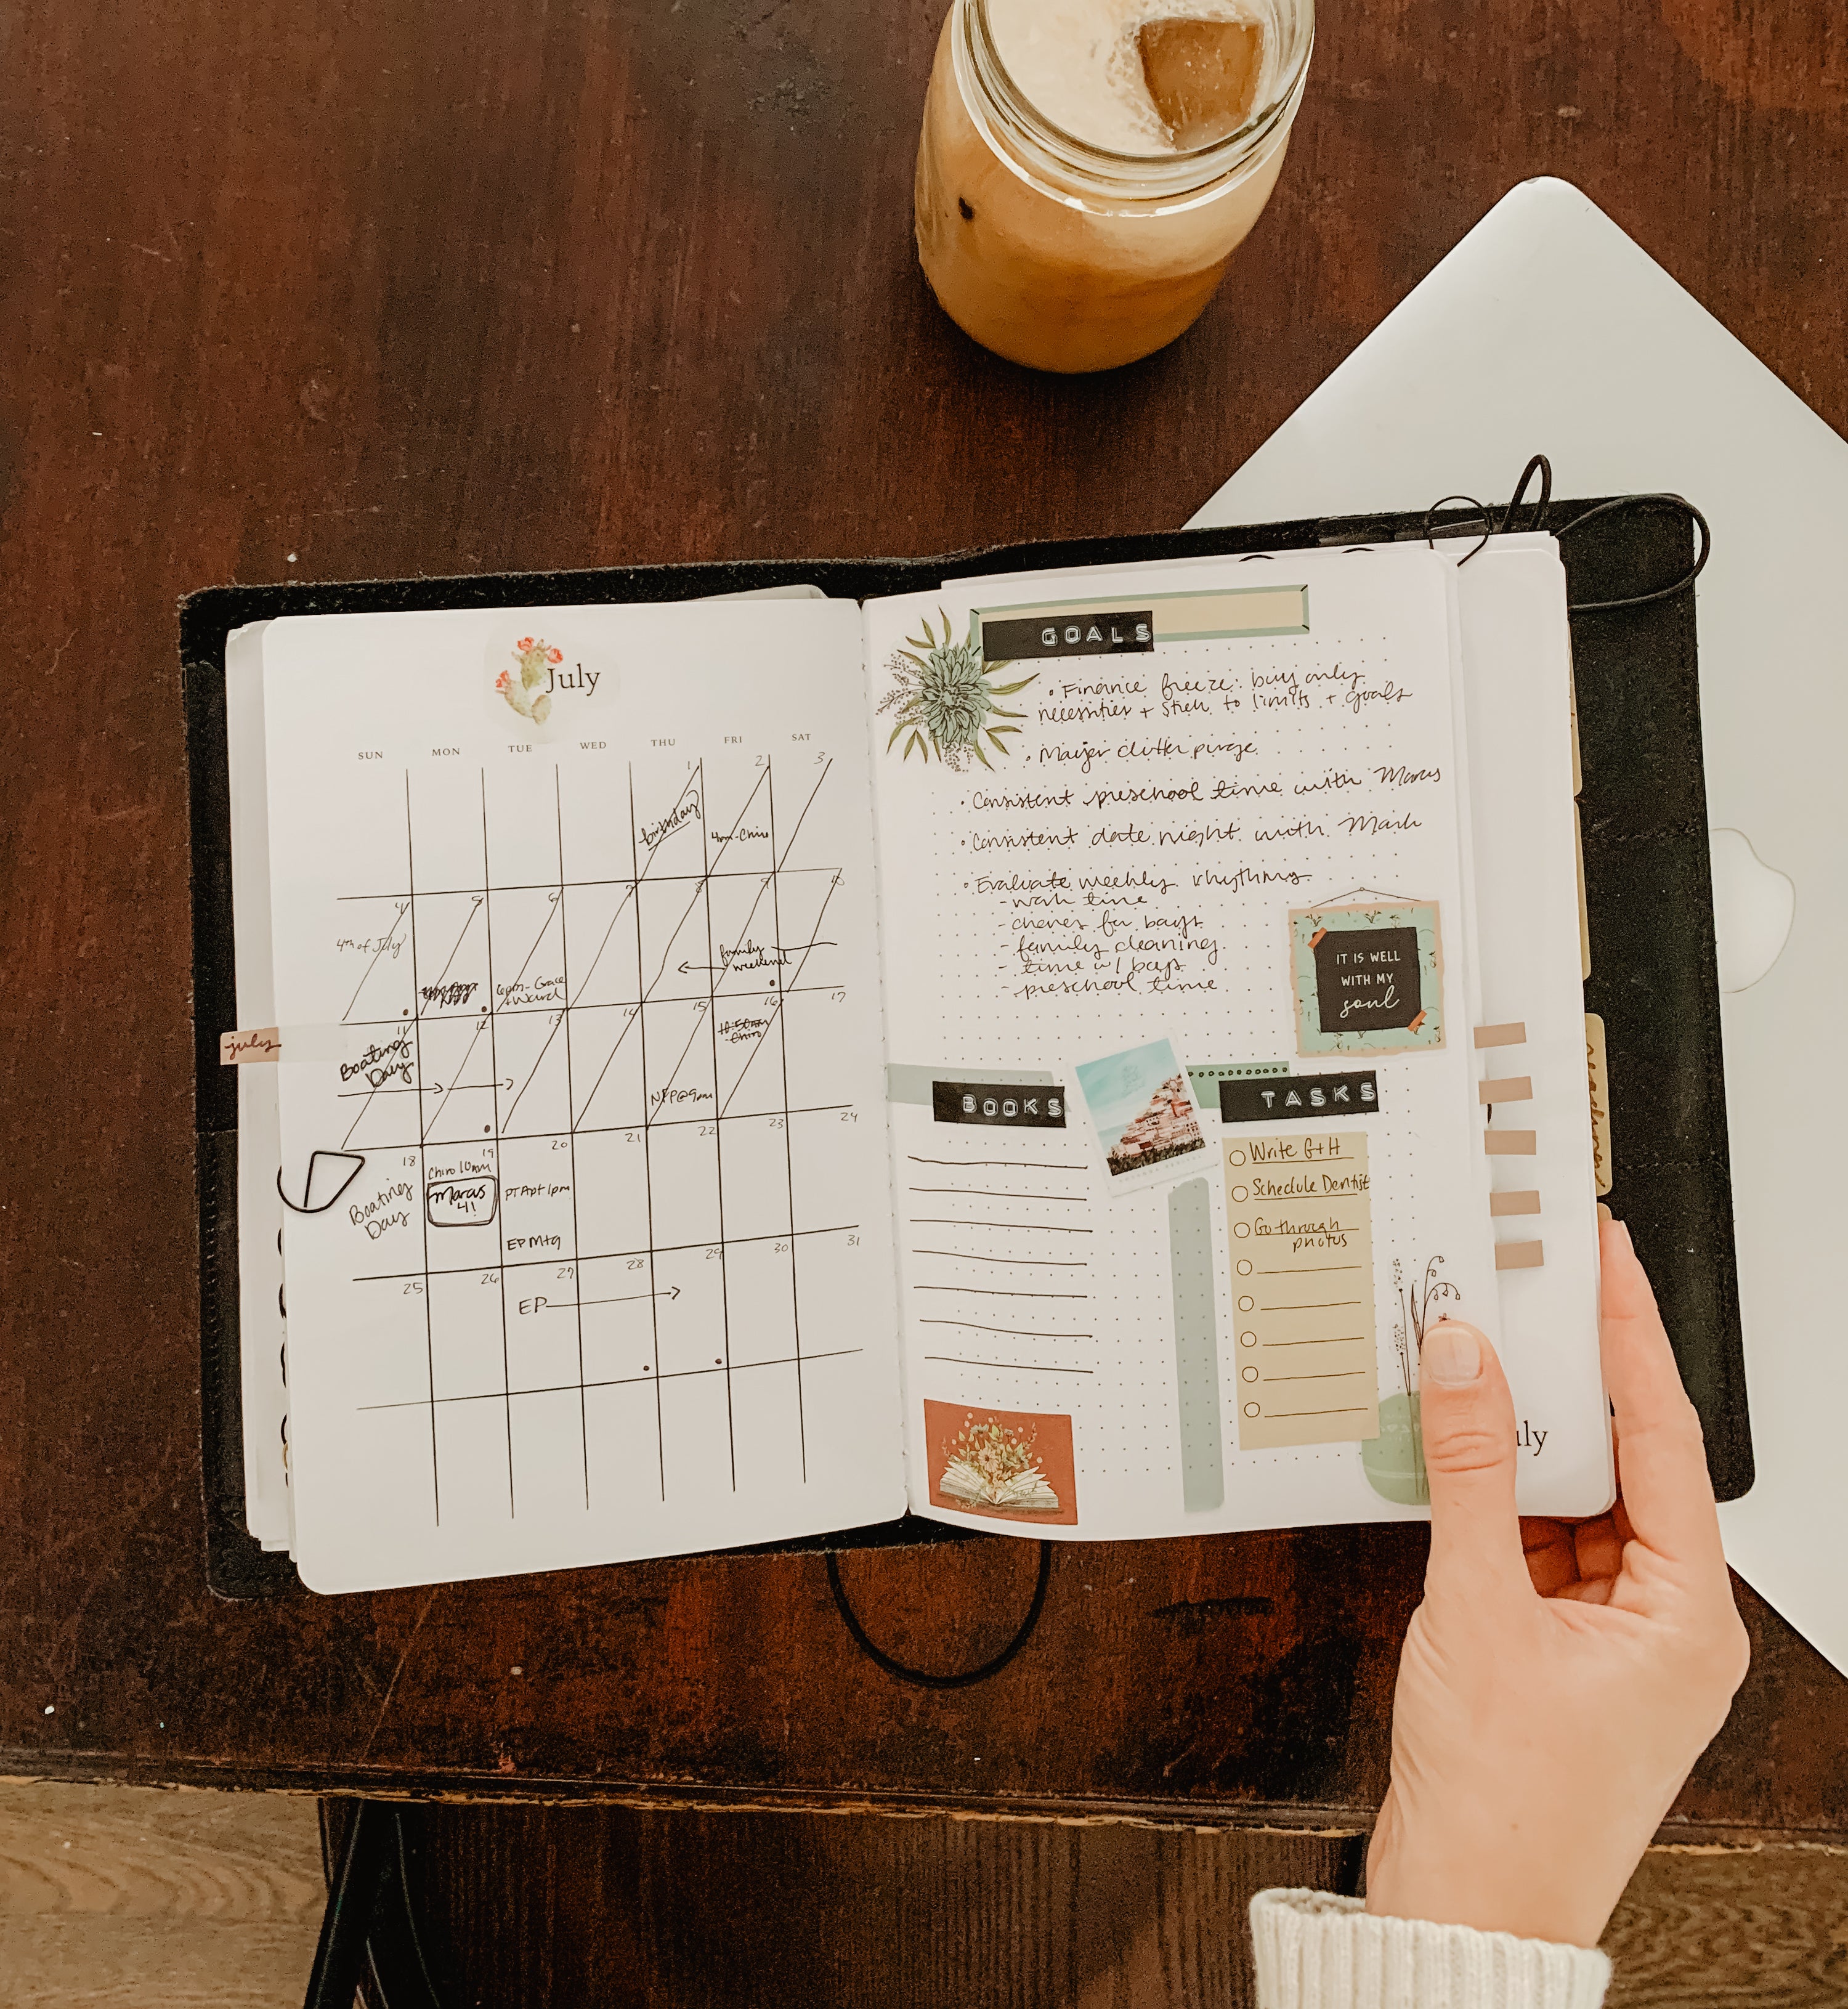 July
SUN MON TUE WED THU FRI SAT
1 2 3
birthday
4pm-Chiro
4 5 6 7 8 9 10
4th of July
6pm-Grace
family
weekend
11 12 13 14 15 16 17
Boating
Day
10:50am
Chiro
NFP@9pm
18 19 20 21 22 23 24
Boating
Day
Chiro 10am
Marcus
4!
PT Apt 1pm
EP Mtg
25 26 27 28 29 30 31
EP
july
GOALS
• Finance freeze: buy only
necessities + stick to limits + goals
• Major clutter purge
• Consistent preschool time with Marcus
• Consistent date night with Mark
• Evaluate weekly rhythms
- work time
- chores for boys
- family cleaning
- time w/ boys
- preschool time
IT IS WELL
WITH MY
soul
BOOKS
TASKS
Write G+H
Schedule Dentist
Go through
photos
uly